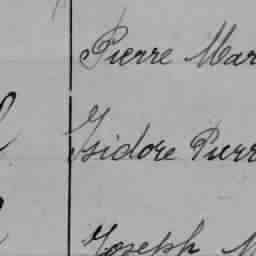 Pierre Mar
Isidore Pierr
Joseph M